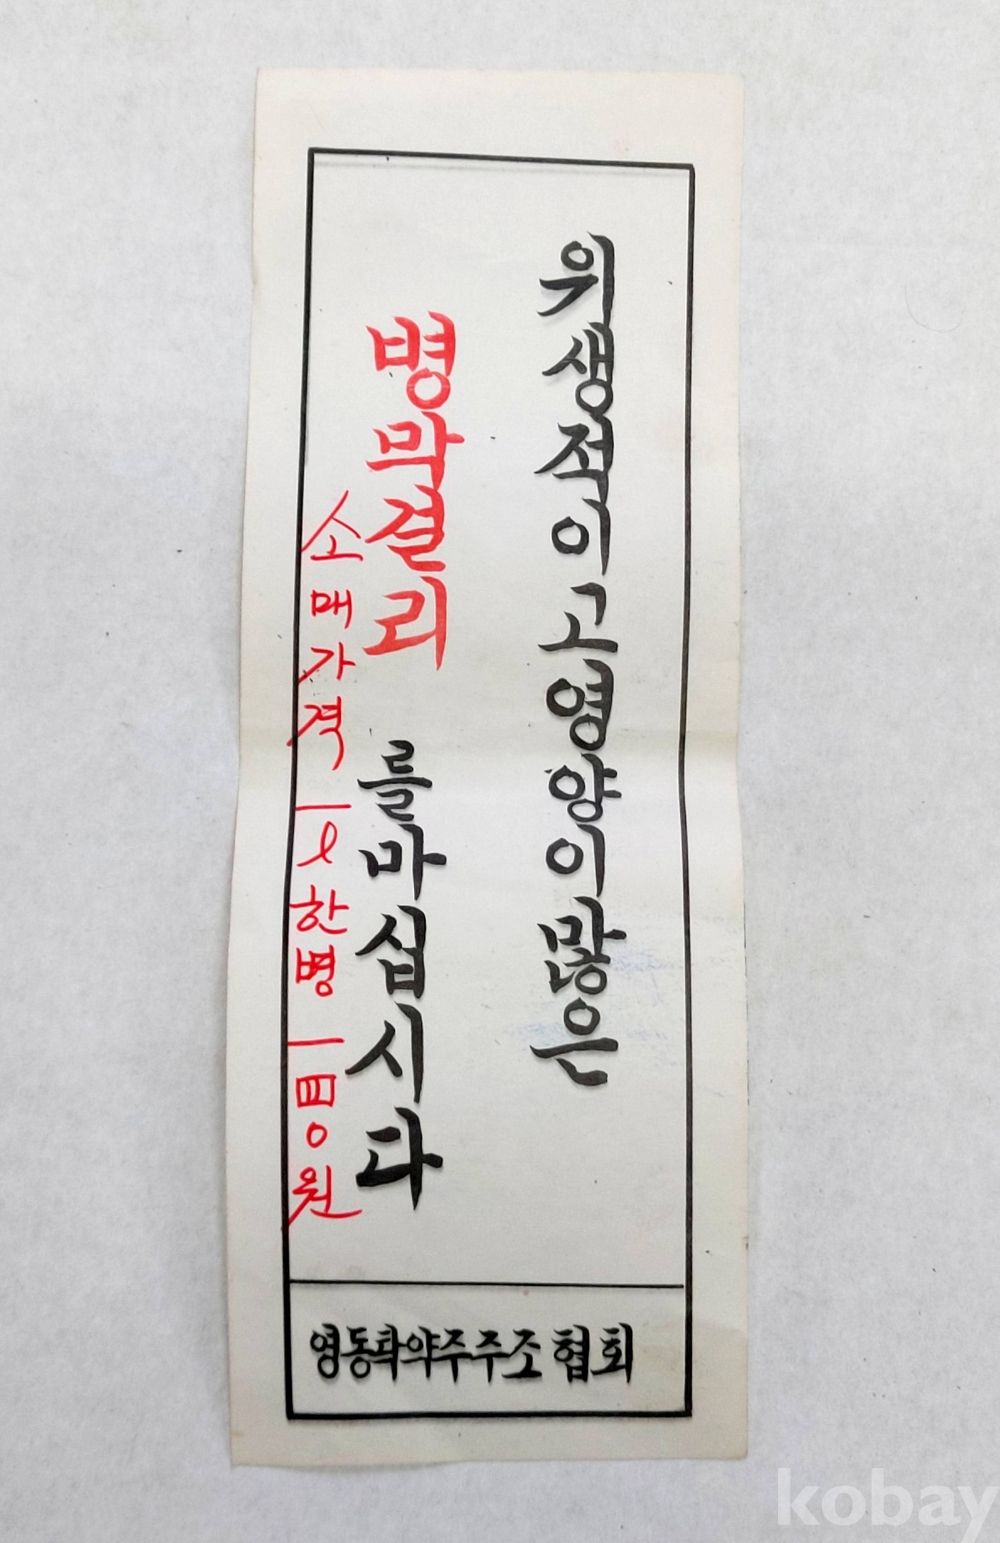 위생적이고영양이많은
병막걸리 를마십시다
소매가격 一ℓ한병 一四0원
영동탁약주주조협회
kobay